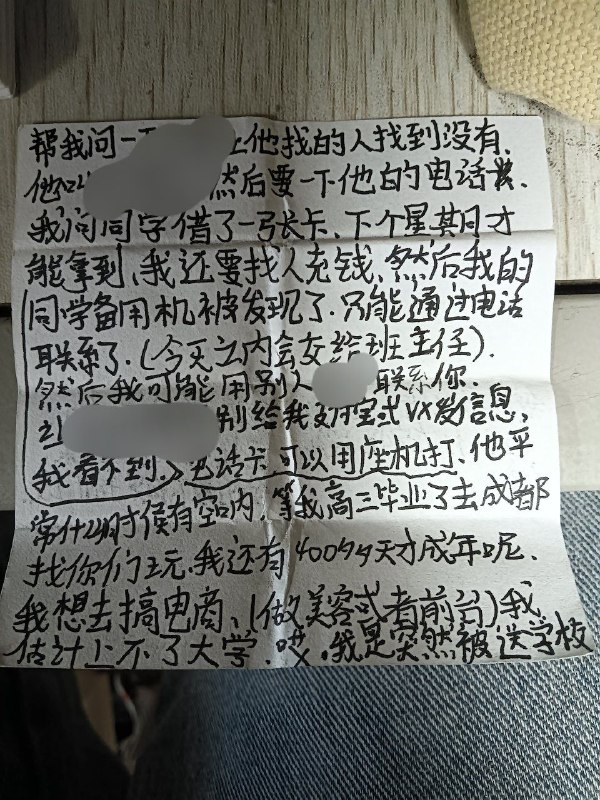 帮我问一下 让他找的人找到没有、
他叫 然后要一下他的电话
我问同学借了一张卡、下个星期才
能拿到、我还要找人充钱、然后我的
同学备用机被发现了、只能通过电话
联系了、(今天之内会交给班主任)、
然后我可能用别人 联系你、
别给我 VX发信息、
我看不到、电话卡可以用座机打、他平
常什么时候有空呐、等我高三毕业了去成都
找你们玩、我还有400多天才成年呢、
我想去搞电商、(做美容或者前台)我
估计上不了大学、哎、我是突然被送学校